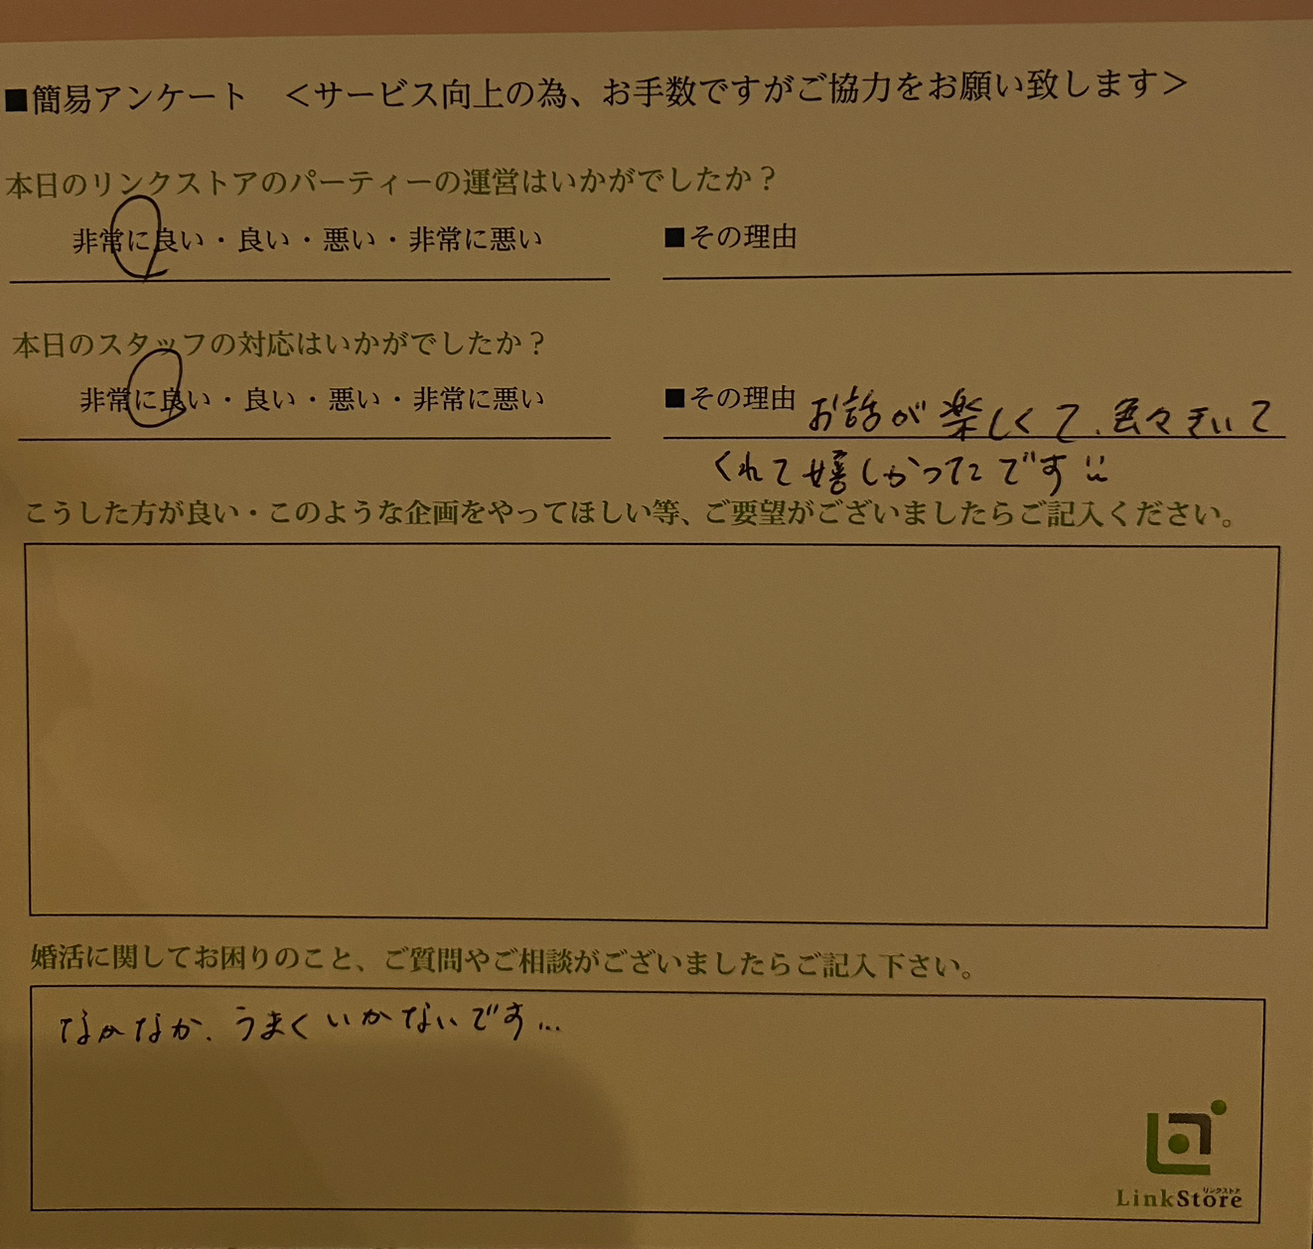 ■簡易アンケート ＜サービス向上の為、お手数ですがご協力をお願い致します＞
本日のリンクストアのパーティーの運営はいかがでしたか？
非常に良い・良い・悪い・非常に悪い ■その理由
本日のスタッフの対応はいかがでしたか？
非常に良い・良い・悪い・非常に悪い ■その理由 お話が楽しくて、色々きいて
くれて嬉しかったです
こうした方が良い・このような企画をやってほしい等、ご要望がございましたらご記入ください。
婚活に関してお困りのこと、ご質問やご相談がございましたらご記入下さい。
なかなか、うまくいかないです...
リンクストア
LinkStore